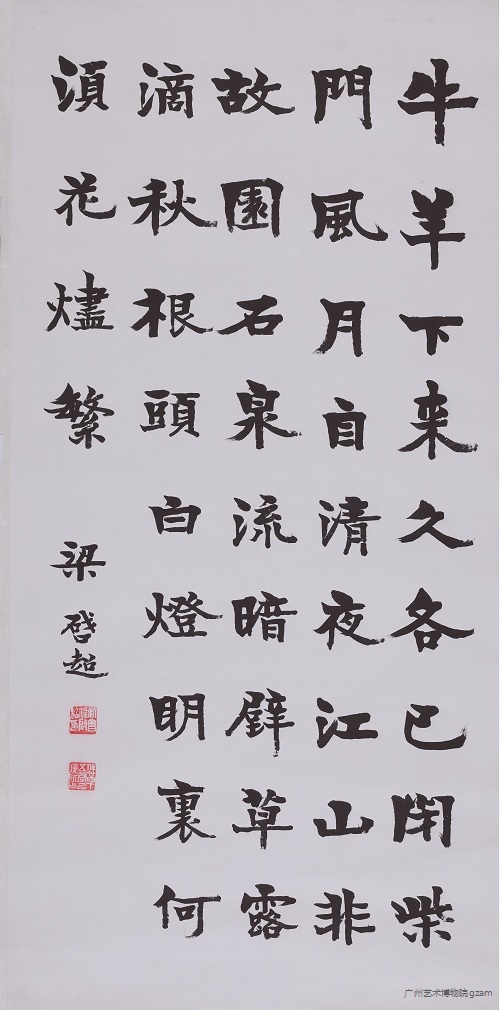 牛羊下来久各已閉柴
門風月自清夜江山非
故園石泉流暗壁草露
滴秋根頭白燈明裏何
須花燼繁
梁啓超
广州艺术博物院 gzam